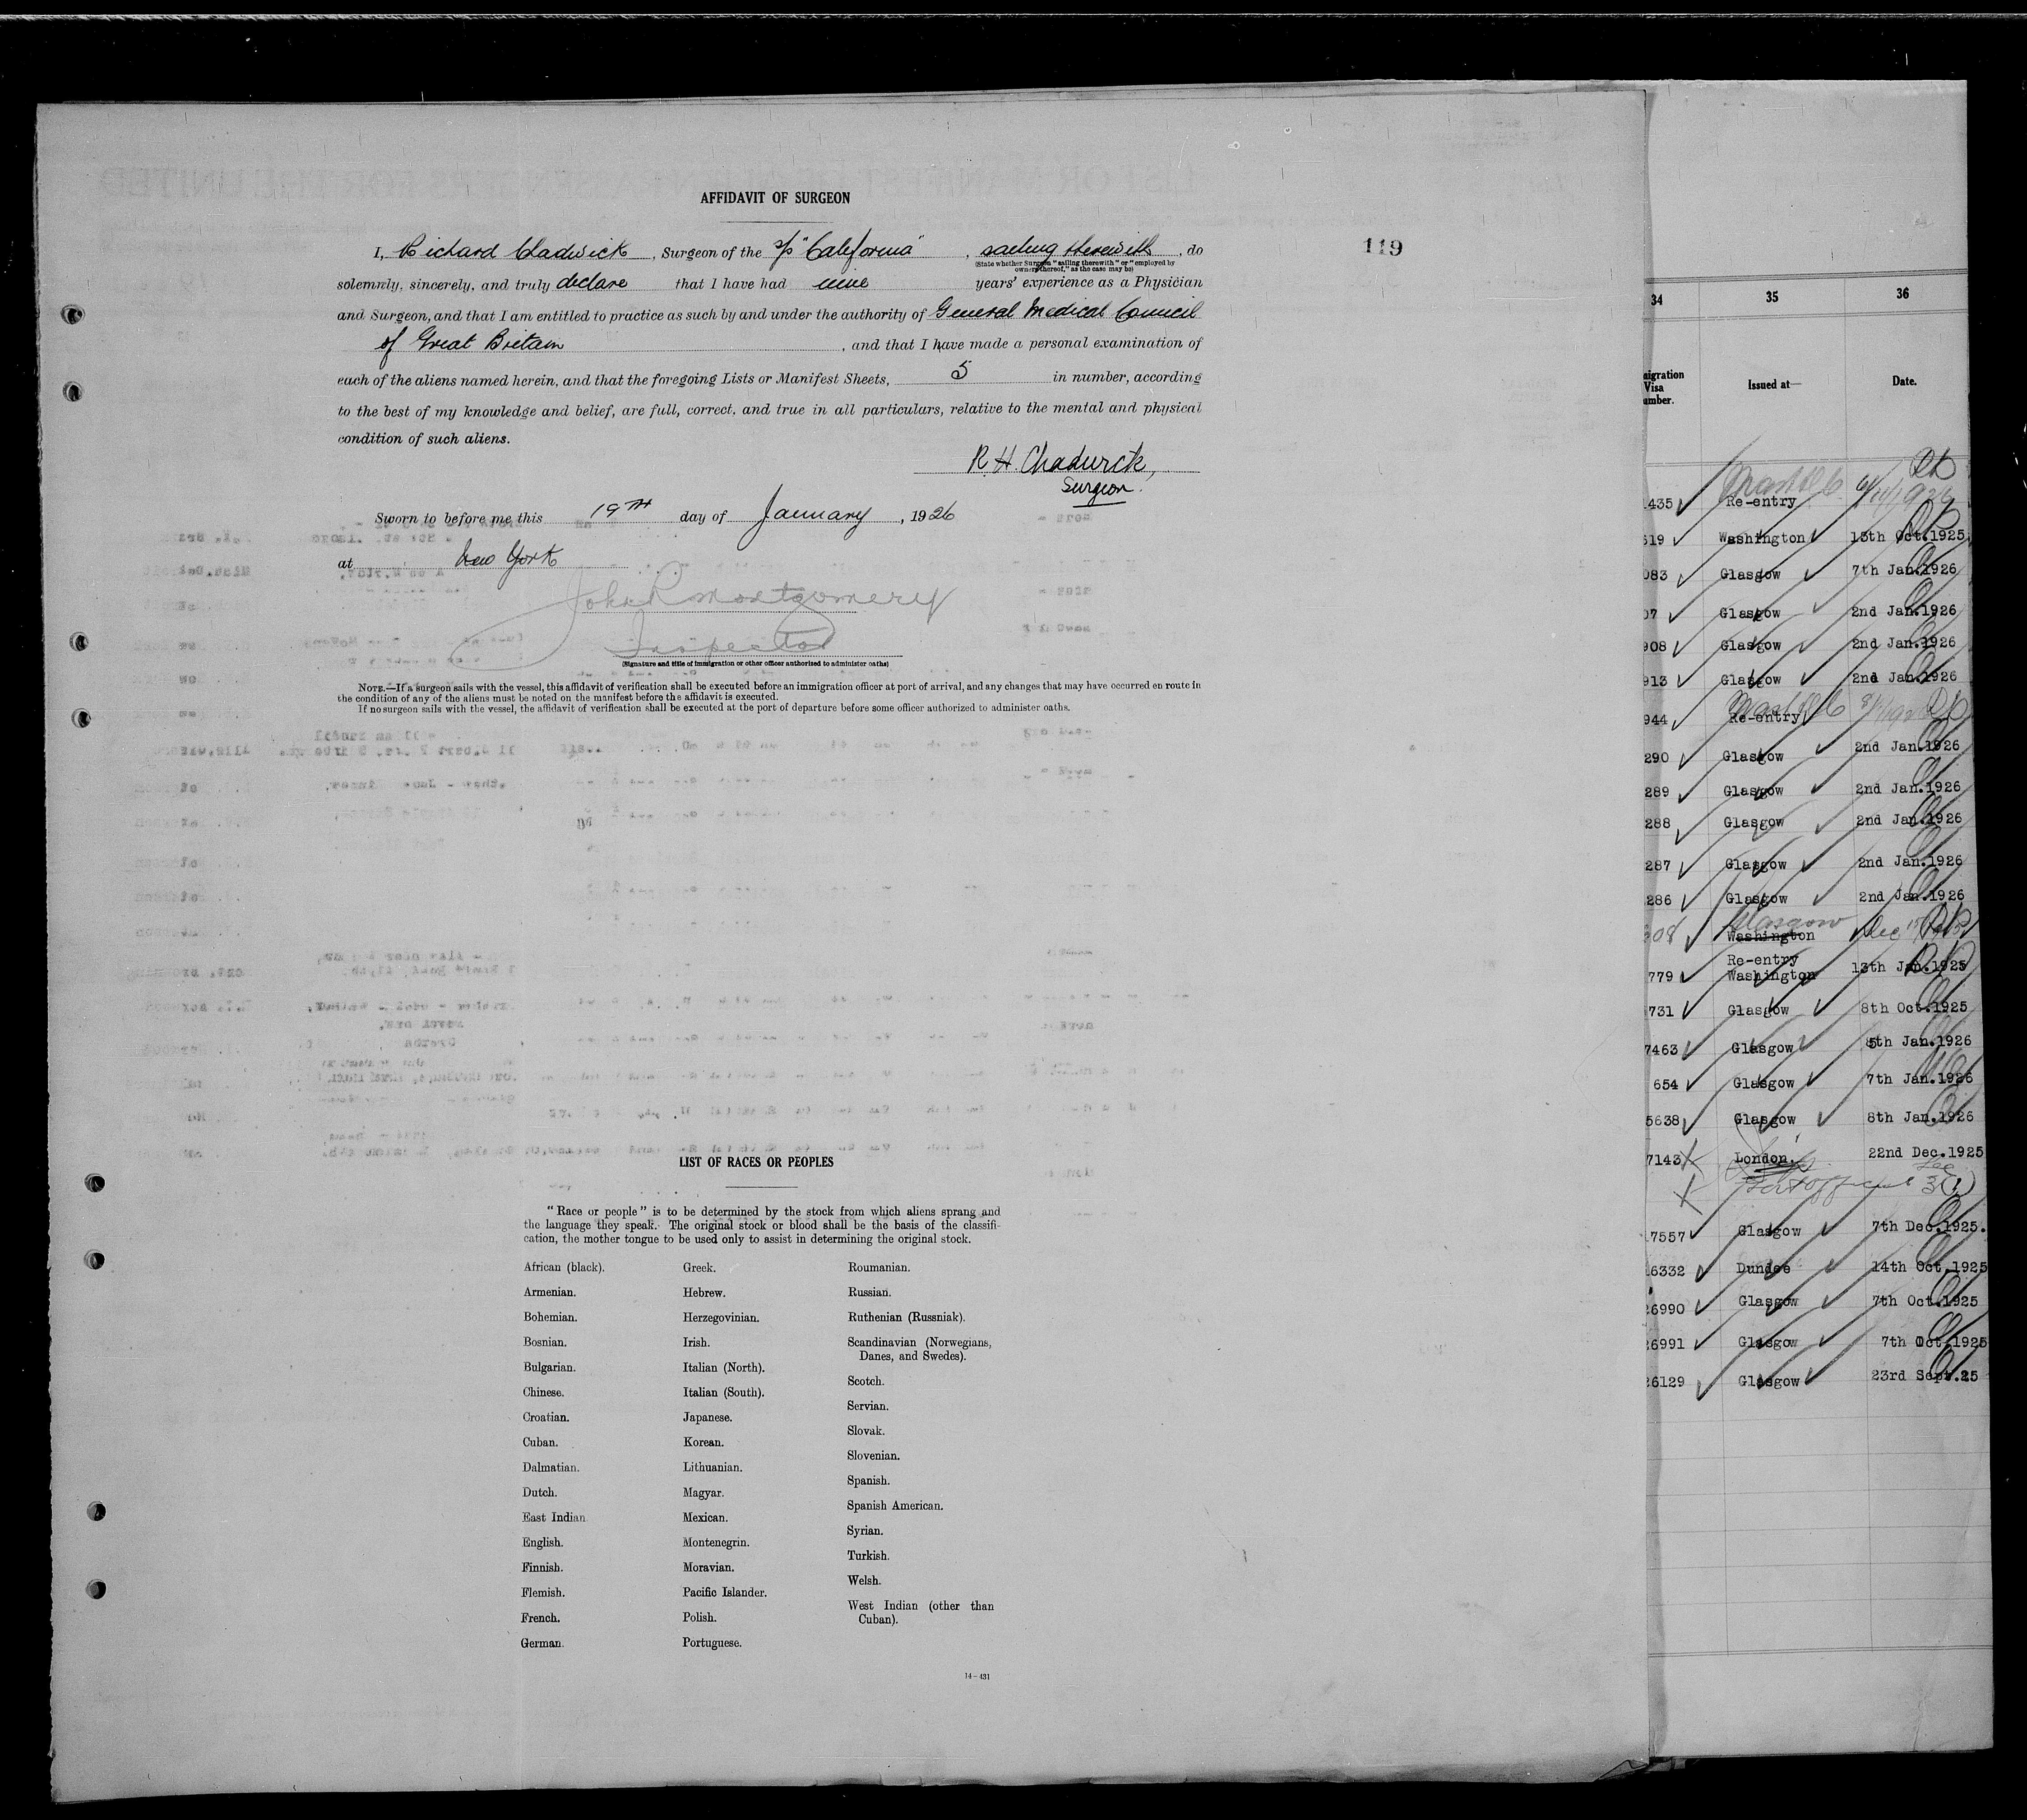 AFFIDAVIT OF SURGEON
I, Richard Chadwick, Surgeon of the s/s "California", sailing therewith, do
(State whether Surgeon "sailing therewith" or "employed by
owners thereof," as the case may be)
solemnly, sincerely, and truly declare that I have had nine years' experience as a Physician
and Surgeon, and that I am entitled to practice as such by and under the authority of General Medical Council
of Great Britain, and that I have made a personal examination of
each of the aliens named herein, and that the foregoing Lists or Manifest Sheets, 5 in number, according
to the best of my knowledge and belief, are full, correct, and true in all particulars, relative to the mental and physical
condition of such aliens.
R. H. Chadwick,
Surgeon.
Sworn to before me this 19TH day of January, 1926
at New York
John R Montgomery
Inspector
(Signature and title of immigration or other officer authorized to administer oaths)
NOTE.—If a surgeon sails with the vessel, this affidavit of verification shall be executed before an immigration officer at port of arrival, and any changes that may have occurred en route in
the condition of any of the aliens must be noted on the manifest before the affidavit is executed.
If no surgeon sails with the vessel, the affidavit of verification shall be executed at the port of departure before some officer authorized to administer oaths.
119
LIST OF RACES OR PEOPLES
"Race or people" is to be determined by the stock from which aliens sprang and
the language they speak. The original stock or blood shall be the basis of the classifi-
cation, the mother tongue to be used only to assist in determining the original stock.
African (black).
Armenian.
Bohemian.
Bosnian.
Bulgarian.
Chinese.
Croatian.
Cuban.
Dalmatian.
Dutch.
East Indian
English.
Finnish.
Flemish.
French.
German.
Greek.
Hebrew.
Herzegovinian.
Irish.
Italian (North).
Italian (South).
Japanese.
Korean.
Lithuanian.
Magyar.
Mexican.
Montenegrin.
Moravian.
Pacific Islander.
Polish.
Portuguese.
Roumanian.
Russian.
Ruthenian (Russniak).
Scandinavian (Norwegians,
Danes, and Swedes).
Scotch.
Servian.
Slovak.
Slovenian.
Spanish.
Spanish American.
Syrian.
Turkish.
Welsh.
West Indian (other than
Cuban).
14—431
34 35 36
migration
Visa
umber.
Issued at—
Date.
1435 Re-entry
619 Washington 13th Oct.1925
083 Glasgow 7th Jan.1926
07 Glasgow 2nd Jan.1926
908 Glasgow 2nd Jan.1926
913 Glasgow 2nd Jan.1926
944 Re-entry
290 Glasgow 2nd Jan.1926
289 Glasgow 2nd Jan.1926
288 Glasgow 2nd Jan.1926
287 Glasgow 2nd Jan.1926
286 Glasgow 2nd Jan.1926
Glasgow
608 Washington Dec
Re-entry
779 Washington 13th Jan.1925
731 Glasgow 8th Oct.1925
7463 Glasgow 5th Jan.1926
654 Glasgow 7th Jan.1926
5638 Glasgow 8th Jan.1926
7143 London. 22nd Dec.1925
7557 Glasgow 7th Dec.1925.
6332 Dundee 14th Oct.1925
26990 Glasgow 7th Oct.1925
26991 Glasgow 7th Oct.1925
26129 Glasgow 23rd Sept.25